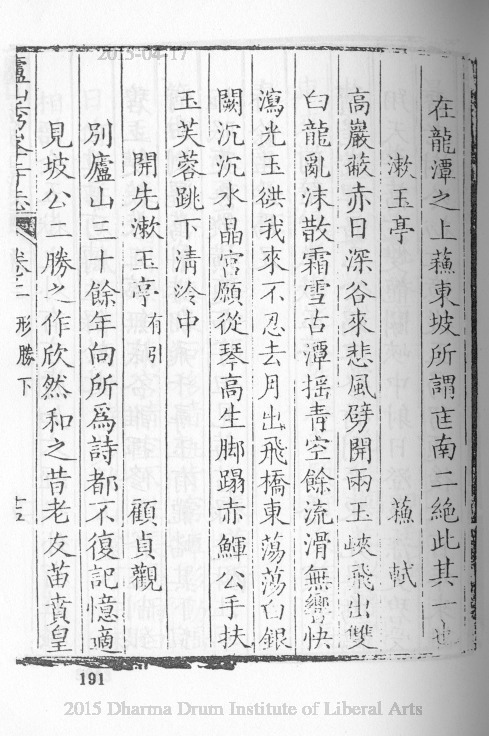 2015-04-17
在龍潭之上蘓東坡所謂匡南二絶此其一也
漱玉亭 蘓 軾
高巖蔽赤日深谷來悲風劈開兩玉峽飛出雙
白龍亂沫散霜雪古潭揺青空餘流滑無聲快
瀉光玉谼我來不忍去月出飛橋東蕩蕩白銀
闕沉沉水晶宮願從琴高生脚蹋赤鯶公手扶
玉芙蓉跳下清泠中
開先漱玉亭 有引 顧貞觀
別廬山三十餘年向所爲詩都不復記憶適
見坡公二勝之作欣然和之昔老友苗蕡皇
廬山秀峰寺志 卷二 形勝下
191
2015 Dharma Drum Institute of Liberal Arts